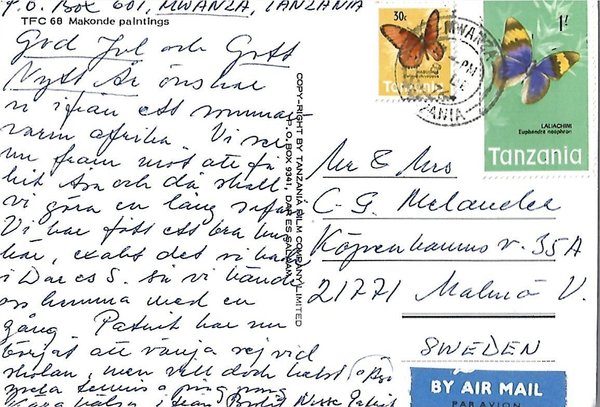 P.O. Box 601, MWANZA, TANZANIA
TFC 68 Makonde paintings
God Jul och Gott
Nytt År önskar
vi ifrån ett sommar-
varm afrika. Vi ser
nu fram mot att få
hit Åsa och då skall
vi göra en lång safari
Vi har fått ett bra hus
här, exakt det vi hade
i Dar es S. så vi kände
oss hemma med en
gång Patrik har nu
börjat att vänja sej vid
skolan, men vill dock helst
spela tennis o ping pong
COPY-RIGHT BY TANZANIA FILM COMPANY LIMITED
P.O. BOX 9341, DAR ES SALAAM
30c
Tanzania
MWANZA
ZANIA
1/-
LALIACHINI
Euphaedra neophron
Tanzania
Mr & Mrs
C-G. Melander
Köpenhamnsv. 35A
21771 Malmö V.
SWEDEN
BY AIR MAIL
PAR AVION